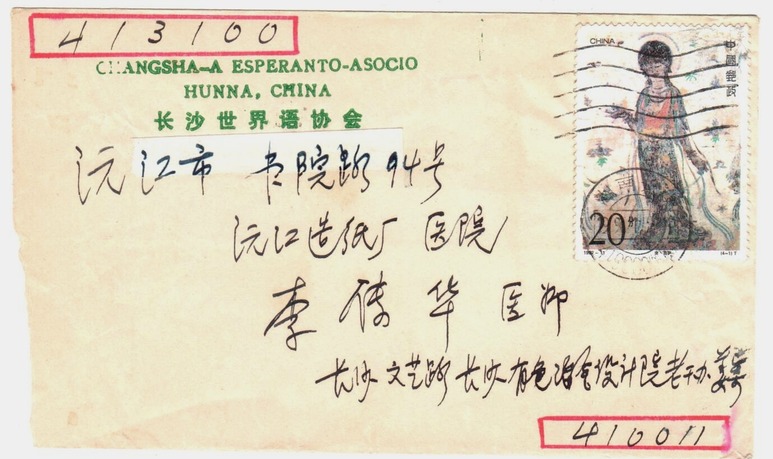 413100
CHANGSHA-A ESPERANTO-ASOCIO
HUNNA, CHINA
长沙世界语协会
CHINA
中国邮政
20分
沅江市 书院路94号
沅江造纸厂 医院
李倩华 医师
长沙文艺路长沙有色冶金设计院老干办
410011